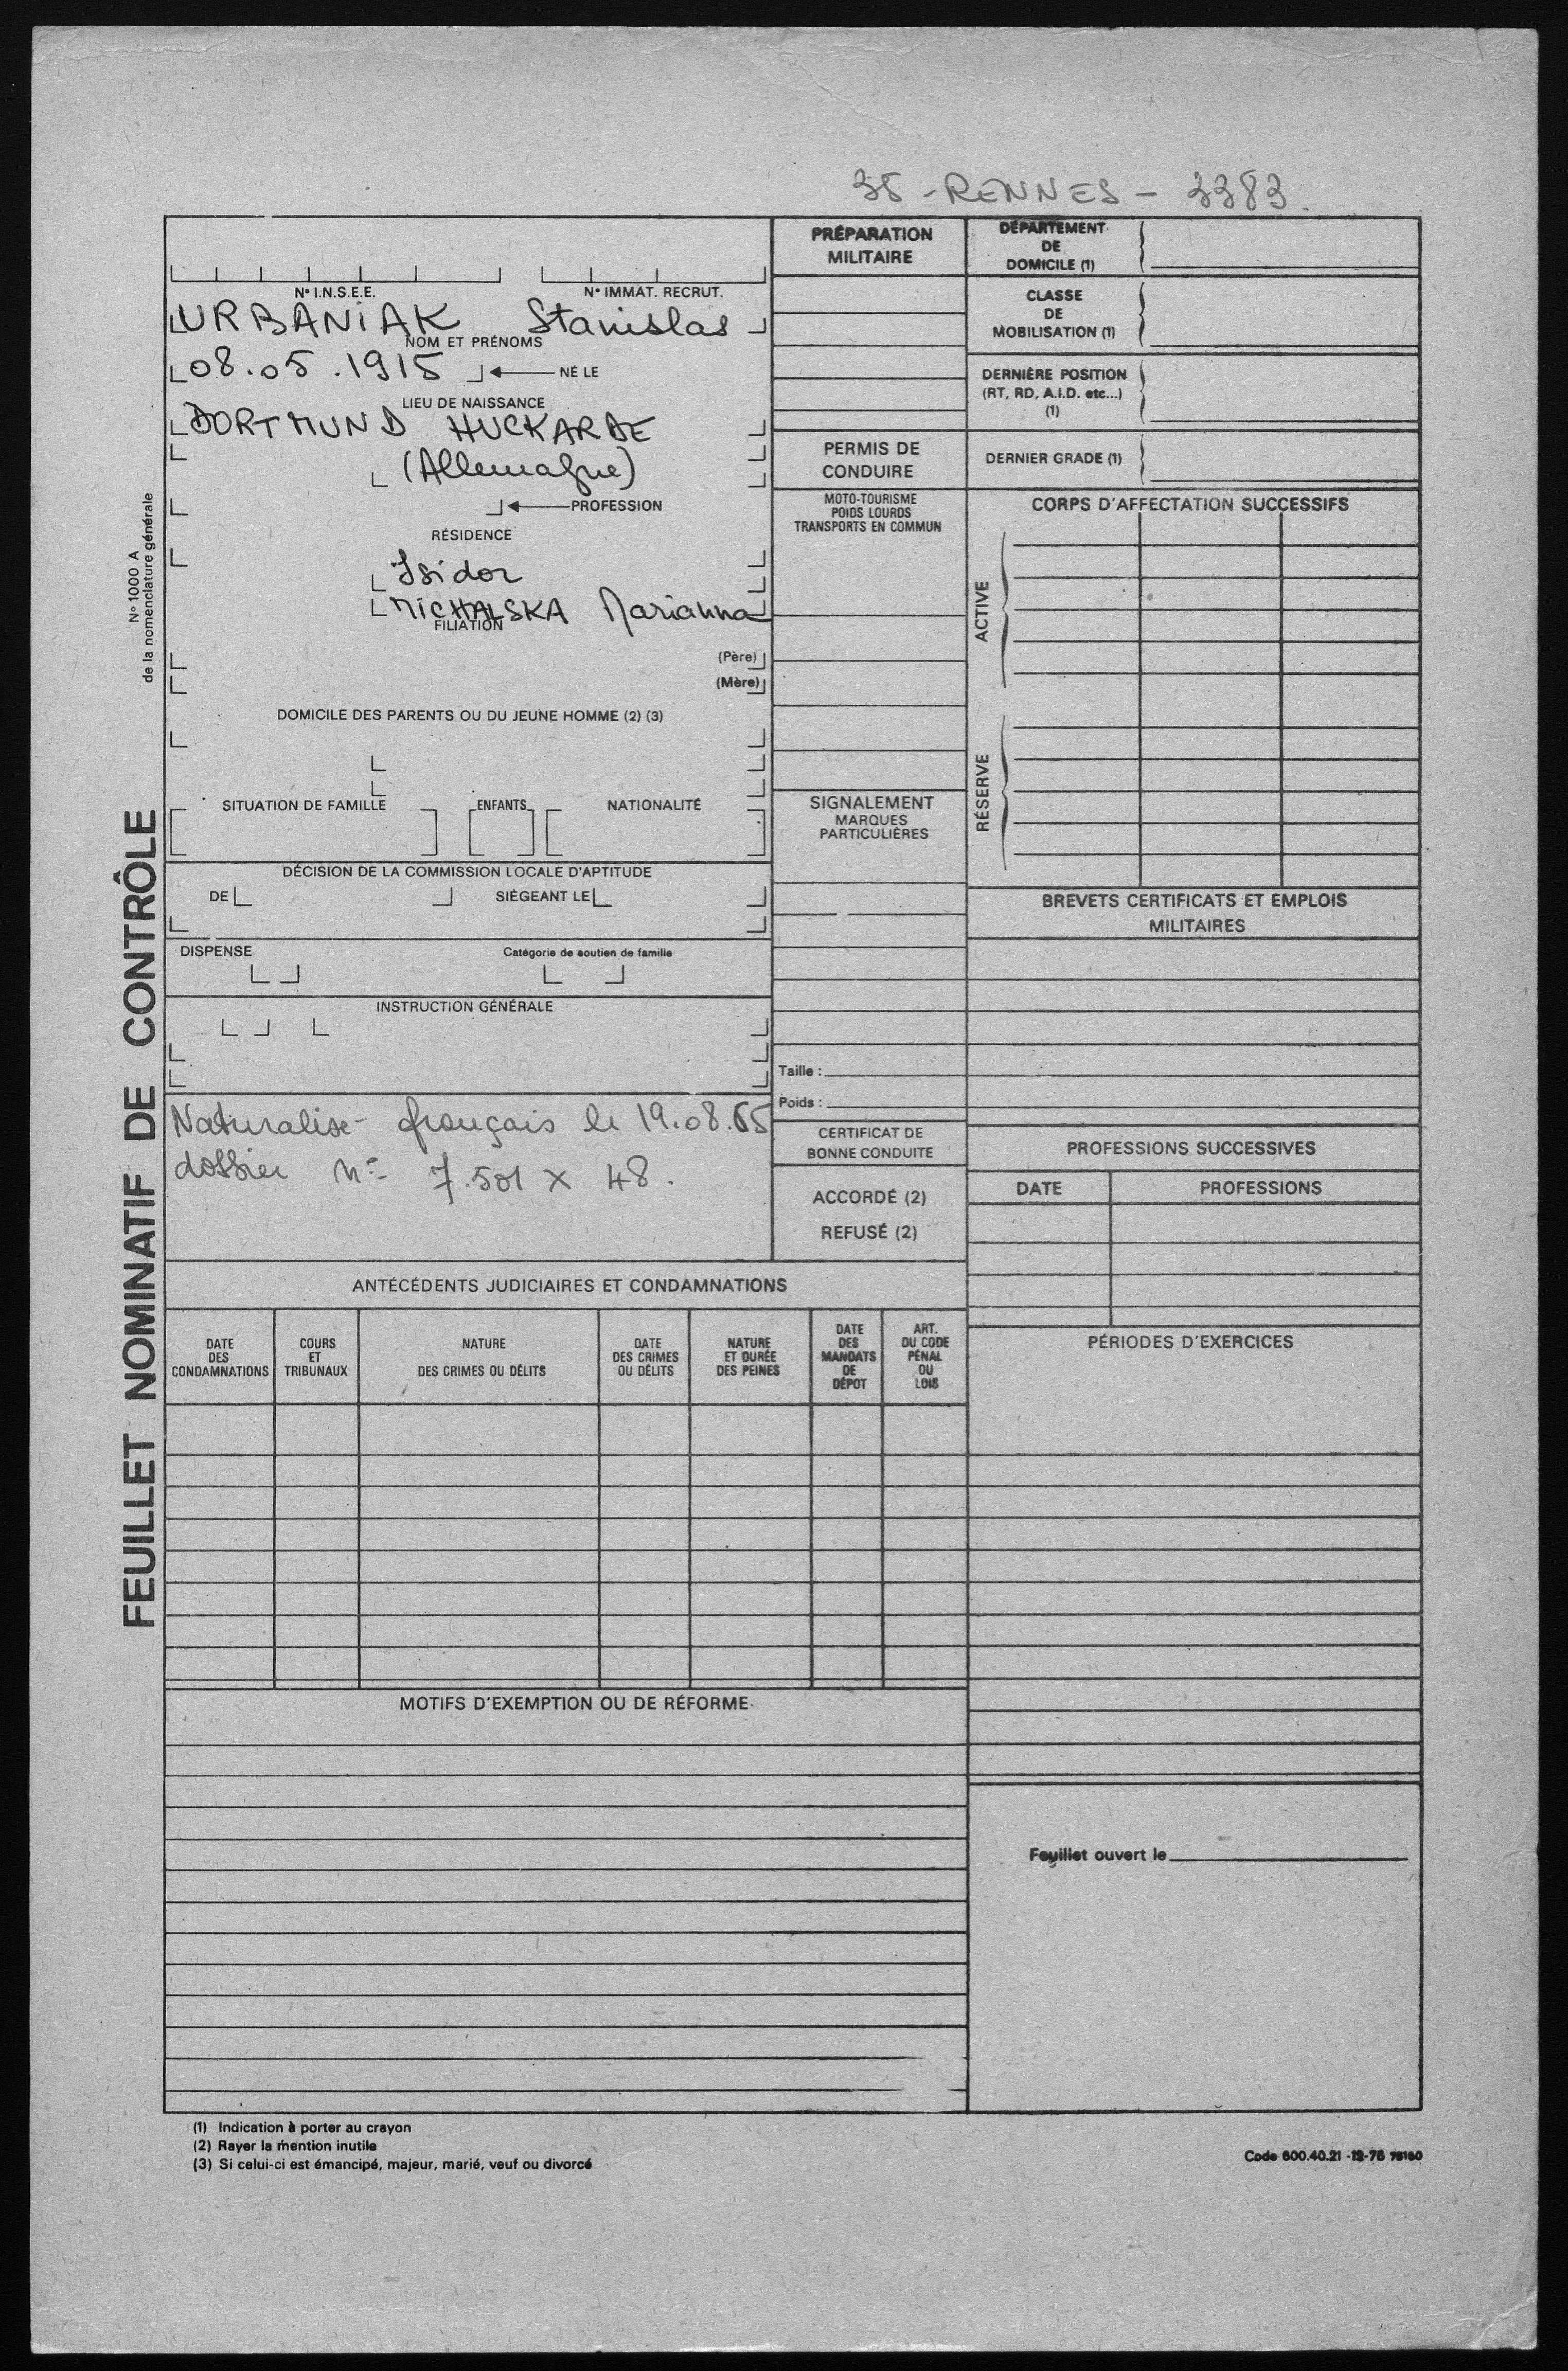 35 - RENNES - 3383.
N° 1000 A
de la nomenclature générale
FEUILLET NOMINATIF DE CONTRÔLE
N° I.N.S.E.E.
N° IMMAT. RECRUT.
URBANIAK Stanislas
NOM ET PRÉNOMS
08.05.1915 NÉ LE
LIEU DE NAISSANCE
DORTMUND HUCKARDE
(Allemagne)
PROFESSION
RÉSIDENCE
Isidor
MICHALSKA Marianna
FILIATION
(Père)
(Mère)
DOMICILE DES PARENTS OU DU JEUNE HOMME (2) (3)
SITUATION DE FAMILLE
ENFANTS
NATIONALITÉ
DÉCISION DE LA COMMISSION LOCALE D'APTITUDE
DE
SIÈGEANT LE
DISPENSE
Catégorie de soutien de famille
INSTRUCTION GÉNÉRALE
Naturalisé français le 19.08.65
dossier n° 7.501 X 48.
PRÉPARATION
MILITAIRE
PERMIS DE
CONDUIRE
MOTO-TOURISME
POIDS LOURDS
TRANSPORTS EN COMMUN
SIGNALEMENT
MARQUES
PARTICULIÈRES
Taille :
Poids :
CERTIFICAT DE
BONNE CONDUITE
ACCORDÉ (2)
REFUSÉ (2)
DÉPARTEMENT
DE
DOMICILE (1)
CLASSE
DE
MOBILISATION (1)
DERNIÈRE POSITION
(RT, RD, A.I.D. etc...)
(1)
DERNIER GRADE (1)
CORPS D'AFFECTATION SUCCESSIFS
ACTIVE
RÉSERVE
BREVETS CERTIFICATS ET EMPLOIS
MILITAIRES
PROFESSIONS SUCCESSIVES
DATE
PROFESSIONS
PÉRIODES D'EXERCICES
Feuillet ouvert le
ANTÉCÉDENTS JUDICIAIRES ET CONDAMNATIONS
DATE
DES
CONDAMNATIONS
COURS
ET
TRIBUNAUX
NATURE
DES CRIMES OU DÉLITS
DATE
DES CRIMES
OU DÉLITS
NATURE
ET DURÉE
DES PEINES
DATE
DES
MANDATS
DE
DÉPOT
ART.
DU CODE
PÉNAL
OU
LOIS
MOTIFS D'EXEMPTION OU DE RÉFORME
(1) Indication à porter au crayon
(2) Rayer la mention inutile
(3) Si celui-ci est émancipé, majeur, marié, veuf ou divorcé
Code 600.40.21